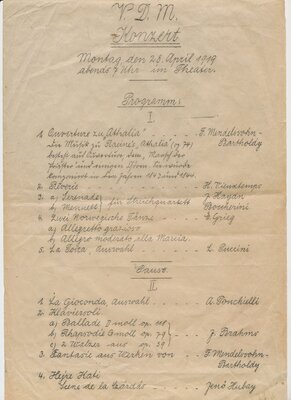 V. D. M.
Konzert
Montag, den 28. April 1919
abends 7 Uhr im Theater.
Programm:
I
1. Ouverture zu „Athalia" . . . . . F. Mendelssohn-
Bartholdy
Die Musik zu Racine's „Athalia" (op 74)
besteht aus Ouverture, dem Marsch der
Priester und
komponiert in den Jahren 1843 und 1845.
2. Rêverie . . . . . H. Vieuxtemps
3. a) Serenade } für Streichquartett J. Haydn
b) Menuett Boccherini
4. Zwei Norwegische Tänze . . . E. Grieg
a) Allegretto grazioso
b) Allegro moderato alla Marcia.
5. La Tosca, Auswahl . . . . . G. Puccini
Pause
II
1. La Gioconda, Auswahl . . . . A. Ponchielli
2. Klaviersoli
a) Ballade D moll op.
b) Rhapsodie G moll op. 79 } . . J. Brahms
c) 2 Walzer aus op. 39
3. Fantasie aus Werken von . . F. Mendelssohn-
Bartholdy
4. Hejre Kati
Scene de la Czárda . . . . Jenő Hubay